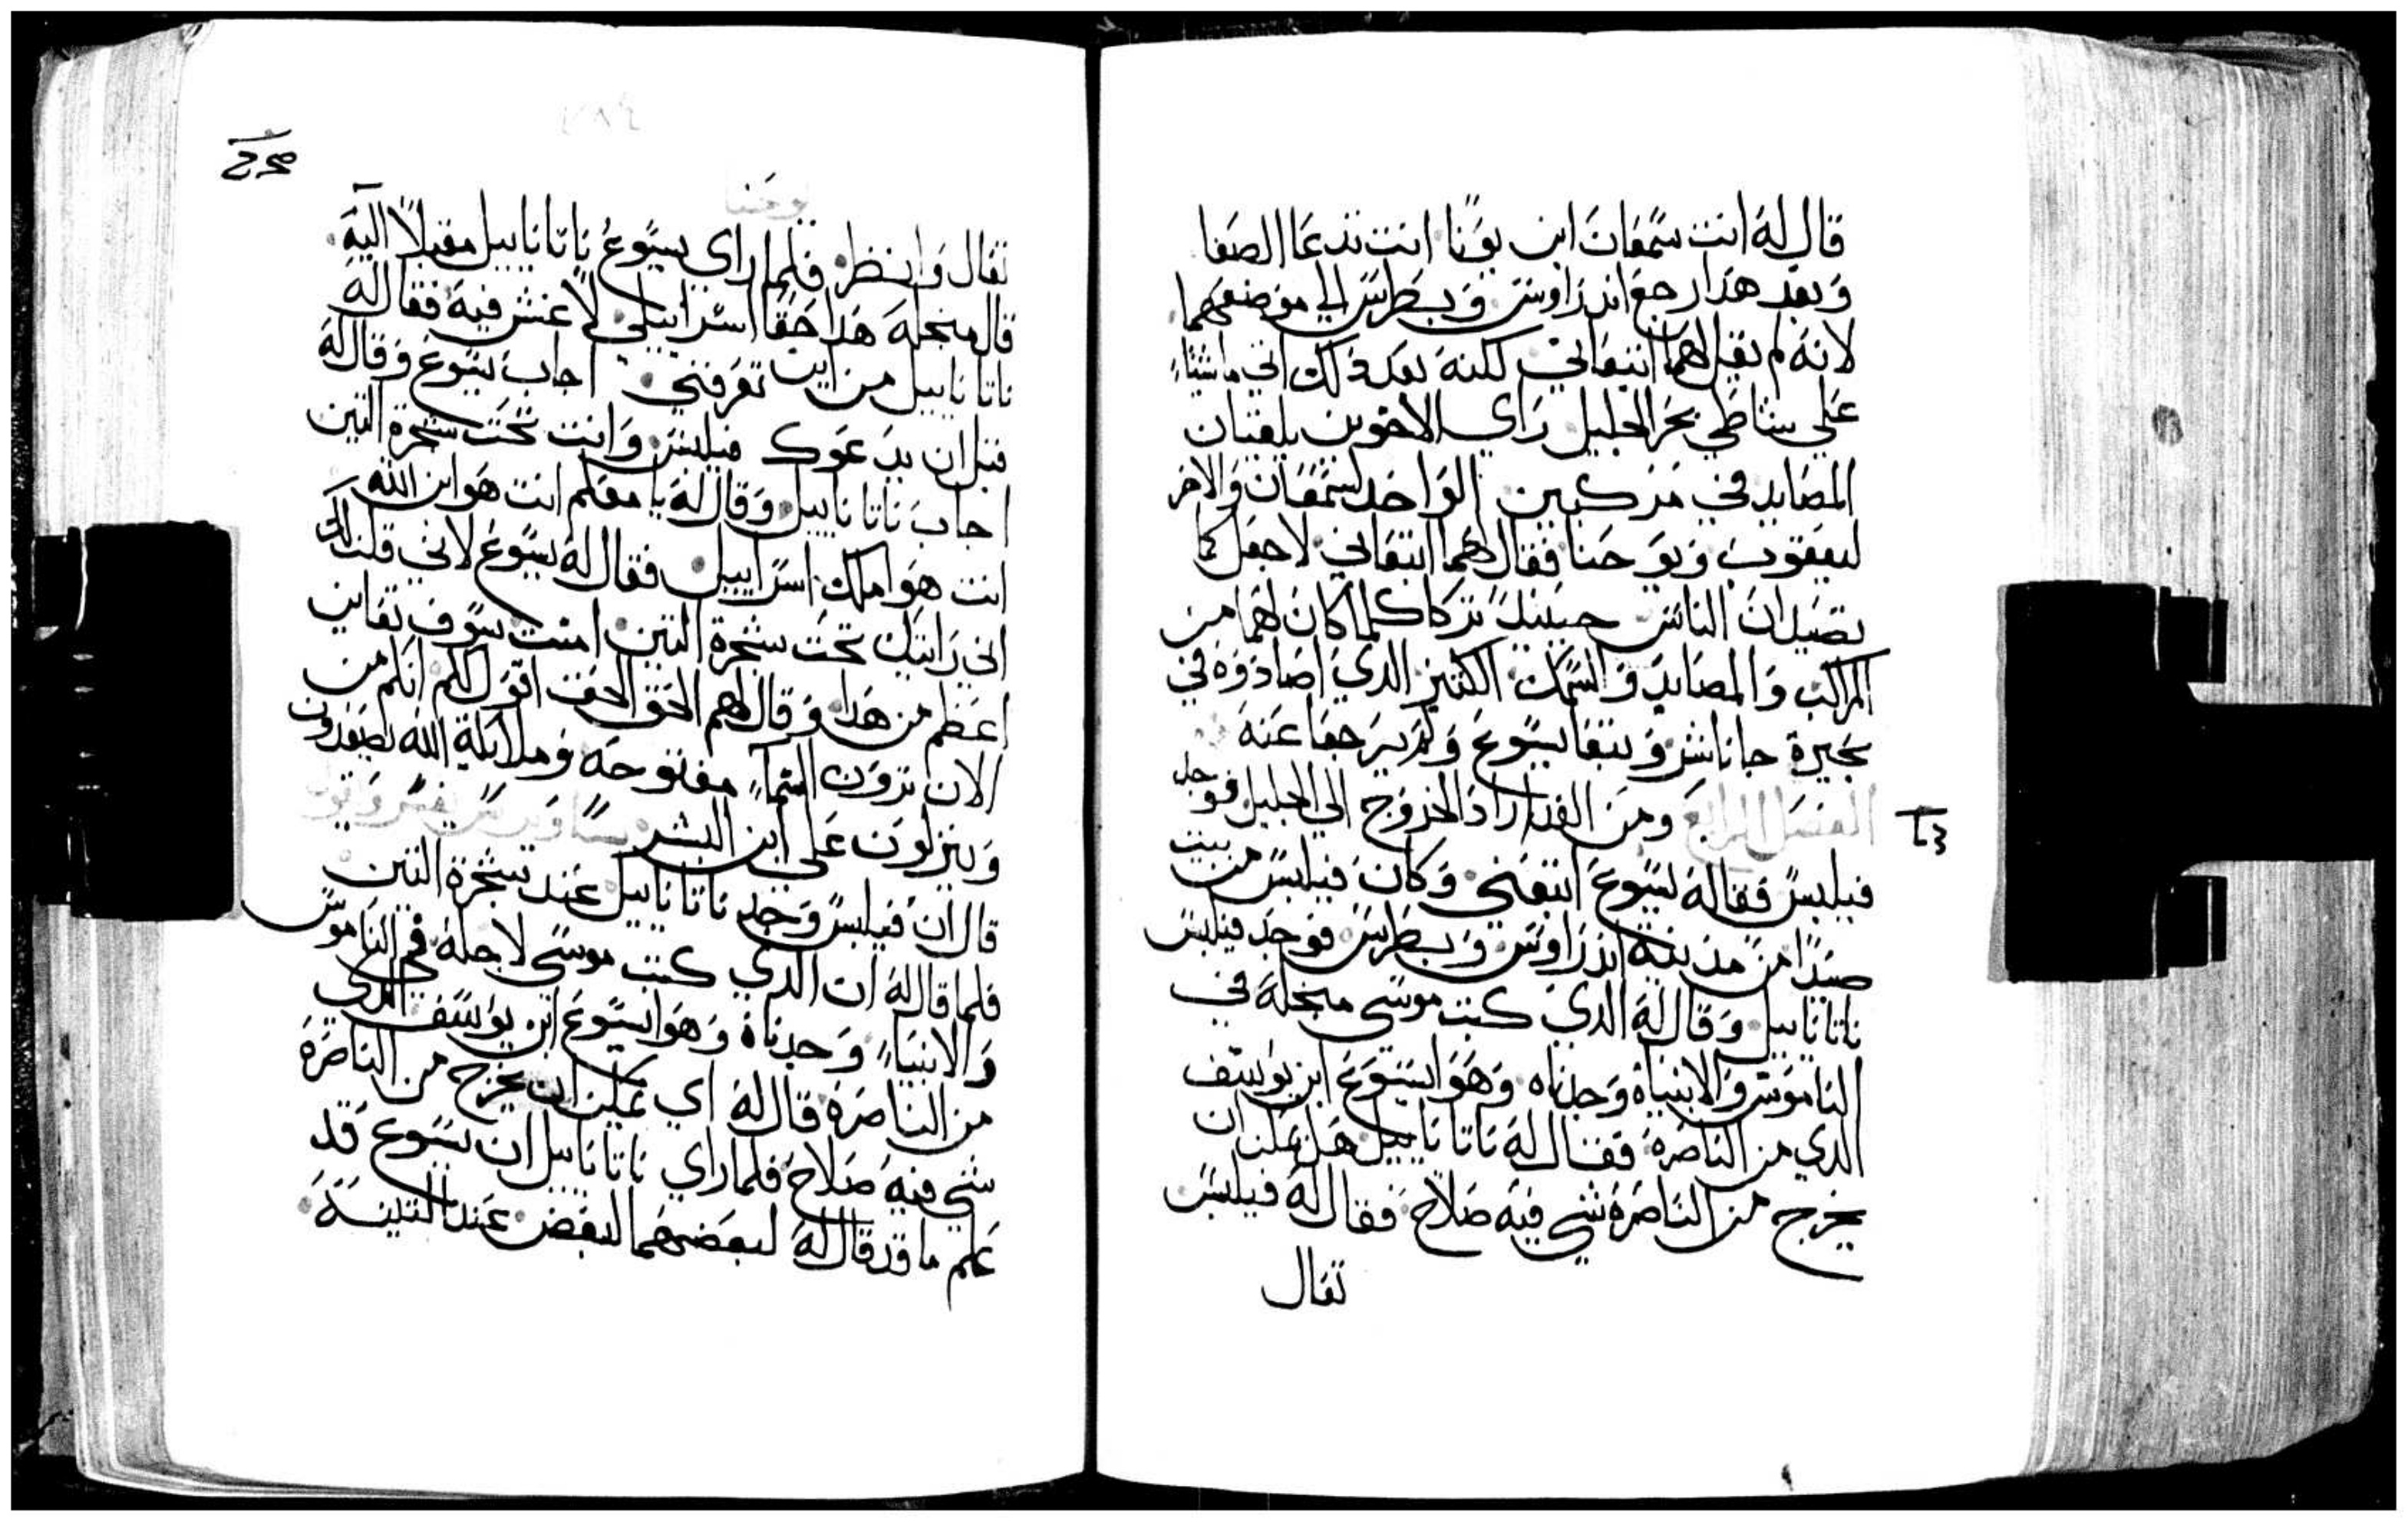 قال له انت سمعان ابن يونا انت تدعا الصفا
وبعد هذا رجع اندراوس وبطرس الي موضعهما
لانه لم يقل لهما اتبعاني لكنه بعد ذلك اتي ماشياً
علي شاطي بحر الجليل راي الاخوين يلقيان
المصايد في مركبين الواحد لسمعان والاخر
ليعقوب ويوحنا فقال لهما اتبعاني لاجعلكما
تصيدان الناس حينيذ تركا كلما كان لهما من
المراكب والمصايد والسمك الكتير الدي اصادوه في
بحيرة جاناشر وتبعا يسوع ولم يرجعا عنه
الفصل الرابع ومن الغد اراد الخروج الي الجليل فوجد
فيلبس فقال له يسوع اتبعني وكان فيلبس من بيت
صيدا من مدينة اندراوس وبطرس فوجد فيلبس
ناتاناييل وقال له الدي كتب موسي منجله في
الناموس والانبياء وجدناه وهو ايسوع ابن يوسف
الدي من الناصرة فقال له ناتاناييل هل يمكن ان
يخرج من الناصرة شي فيه صلاح فقال له فيلبس
تعال
يوحنا
تعال وانظر فلما راي يسوع ناتاناييل مقبلاً اليه
قال منجله هدا حقا اسراييلي لا غش فيه فقال له
ناتاناييل من اين تعرفني اجاب يسوع وقال له
قبل ان يدعوك فيلبس وانت تحت شجرة التين
اجاب ناتاناييل وقال له يا معلم انت هو ابن الله
انت هوا ملك اسراييل فقال له يسوع لاني قلت لك
اني رايتك تحت شجرة التين امنت سوف تعاين
اعظم من هدا وقال لهم الحق الحق اقول لكم انكم من
الان ترون السماء مفتوحه وملايكة الله يصعدون
وينزلون علي ابن البشر
قال ان فيلبس وجد ناتاناييل عند شجرة التين
فلما قال له ان الدي كتب موسي لاجله في الناموس
والانبياء وجدناه وهو ايسوع ابن يوسف الدي
من الناصرة قال له اي يمكن ان يخرج من الناصرة
شي فيه صلاح فلما راي ناتاناييل ان يسوع قد
علم ما قد قال له لبعضهما لبعض عند التينة